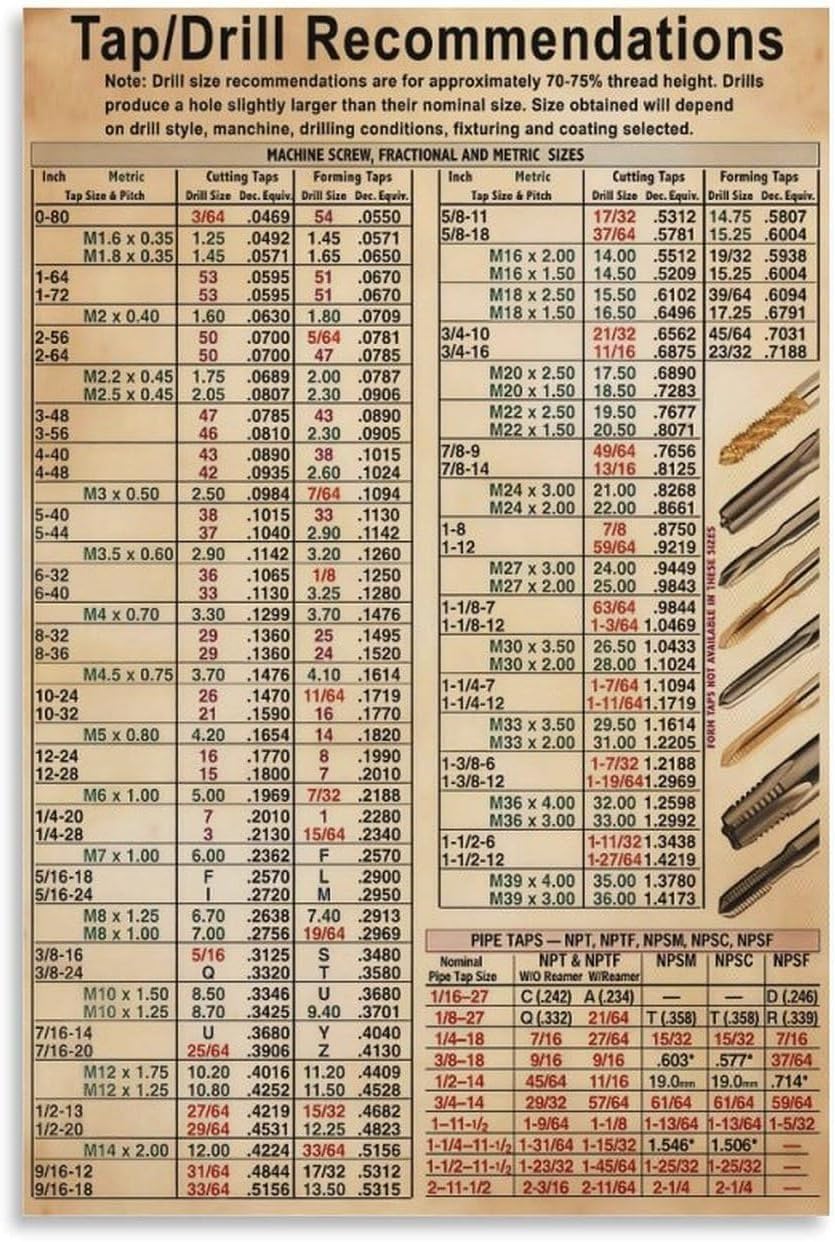 Tap/Drill Recommendations
Note: Drill size recommendations are for approximately 70-75% thread height. Drills
produce a hole slightly larger than their nominal size. Size obtained will depend
on drill style, manchine, drilling conditions, fixturing and coating selected.
MACHINE SCREW, FRACTIONAL AND METRIC SIZES
Inch Metric Cutting Taps Forming Taps
Tap Size & Pitch Drill Size Dec. Equiv. Drill Size Dec. Equiv.
0-80 3/64 .0469 54 .0550
M1.6 x 0.35 1.25 .0492 1.45 .0571
M1.8 x 0.35 1.45 .0571 1.65 .0650
1-64 53 .0595 51 .0670
1-72 53 .0595 51 .0670
M2 x 0.40 1.60 .0630 1.80 .0709
2-56 50 .0700 5/64 .0781
2-64 50 .0700 47 .0785
M2.2 x 0.45 1.75 .0689 2.00 .0787
M2.5 x 0.45 2.05 .0807 2.30 .0906
3-48 47 .0785 43 .0890
3-56 46 .0810 2.30 .0905
4-40 43 .0890 38 .1015
4-48 42 .0935 2.60 .1024
M3 x 0.50 2.50 .0984 7/64 .1094
5-40 38 .1015 33 .1130
5-44 37 .1040 2.90 .1142
M3.5 x 0.60 2.90 .1142 3.20 .1260
6-32 36 .1065 1/8 .1250
6-40 33 .1130 3.25 .1280
M4 x 0.70 3.30 .1299 3.70 .1476
8-32 29 .1360 25 .1495
8-36 29 .1360 24 .1520
M4.5 x 0.75 3.70 .1476 4.10 .1614
10-24 26 .1470 11/64 .1719
10-32 21 .1590 16 .1770
M5 x 0.80 4.20 .1654 14 .1820
12-24 16 .1770 8 .1990
12-28 15 .1800 7 .2010
M6 x 1.00 5.00 .1969 7/32 .2188
1/4-20 7 .2010 1 .2280
1/4-28 3 .2130 15/64 .2340
M7 x 1.00 6.00 .2362 F .2570
5/16-18 F .2570 L .2900
5/16-24 I .2720 M .2950
M8 x 1.25 6.70 .2638 7.40 .2913
M8 x 1.00 7.00 .2756 19/64 .2969
3/8-16 5/16 .3125 S .3480
3/8-24 Q .3320 T .3580
M10 x 1.50 8.50 .3346 U .3680
M10 x 1.25 8.70 .3425 9.40 .3701
7/16-14 U .3680 Y .4040
7/16-20 25/64 .3906 Z .4130
M12 x 1.75 10.20 .4016 11.20 .4409
M12 x 1.25 10.80 .4252 11.50 .4528
1/2-13 27/64 .4219 15/32 .4682
1/2-20 29/64 .4531 12.25 .4823
M14 x 2.00 12.00 .4224 33/64 .5156
9/16-12 31/64 .4844 17/32 .5312
9/16-18 33/64 .5156 13.50 .5315
Inch Metric Cutting Taps Forming Taps
Tap Size & Pitch Drill Size Dec. Equiv. Drill Size Dec. Equiv.
5/8-11 17/32 .5312 14.75 .5807
5/8-18 37/64 .5781 15.25 .6004
M16 x 2.00 14.00 .5512 19/32 .5938
M16 x 1.50 14.50 .5209 15.25 .6004
M18 x 2.50 15.50 .6102 39/64 .6094
M18 x 1.50 16.50 .6496 17.25 .6791
3/4-10 21/32 .6562 45/64 .7031
3/4-16 11/16 .6875 23/32 .7188
M20 x 2.50 17.50 .6890
M20 x 1.50 18.50 .7283
M22 x 2.50 19.50 .7677
M22 x 1.50 20.50 .8071
7/8-9 49/64 .7656
7/8-14 13/16 .8125
M24 x 3.00 21.00 .8268
M24 x 2.00 22.00 .8661
1-8 7/8 .8750
1-12 59/64 .9219
M27 x 3.00 24.00 .9449
M27 x 2.00 25.00 .9843
1-1/8-7 63/64 .9844
1-1/8-12 1-3/64 1.0469
M30 x 3.50 26.50 1.0433
M30 x 2.00 28.00 1.1024
1-1/4-7 1-7/64 1.1094
1-1/4-12 1-11/64 1.1719
M33 x 3.50 29.50 1.1614
M33 x 2.00 31.00 1.2205
1-3/8-6 1-7/32 1.2188
1-3/8-12 1-19/64 1.2969
M36 x 4.00 32.00 1.2598
M36 x 3.00 33.00 1.2992
1-1/2-6 1-11/32 1.3438
1-1/2-12 1-27/64 1.4219
M39 x 4.00 35.00 1.3780
M39 x 3.00 36.00 1.4173
FORM TAPS NOT AVAILABLE IN THESE SIZES
PIPE TAPS — NPT, NPTF, NPSM, NPSC, NPSF
Nominal NPT & NPTF NPSM NPSC NPSF
Pipe Tap Size W/O Reamer W/Reamer
1/16–27 C (.242) A (.234) — — D (.246)
1/8–27 Q (.332) 21/64 T (.358) T (.358) R (.339)
1/4–18 7/16 27/64 15/32 15/32 7/16
3/8–18 9/16 9/16 .603* .577* 37/64
1/2–14 45/64 11/16 19.0mm 19.0mm .714*
3/4–14 29/32 57/64 61/64 61/64 59/64
1–11-1/2 1-9/64 1-1/8 1-13/64 1-13/64 1-5/32
1-1/4–11-1/2 1-31/64 1-15/32 1.546* 1.506* —
1-1/2–11-1/2 1-23/32 1-45/64 1-25/32 1-25/32 —
2–11-1/2 2-3/16 2-11/64 2-1/4 2-1/4 —